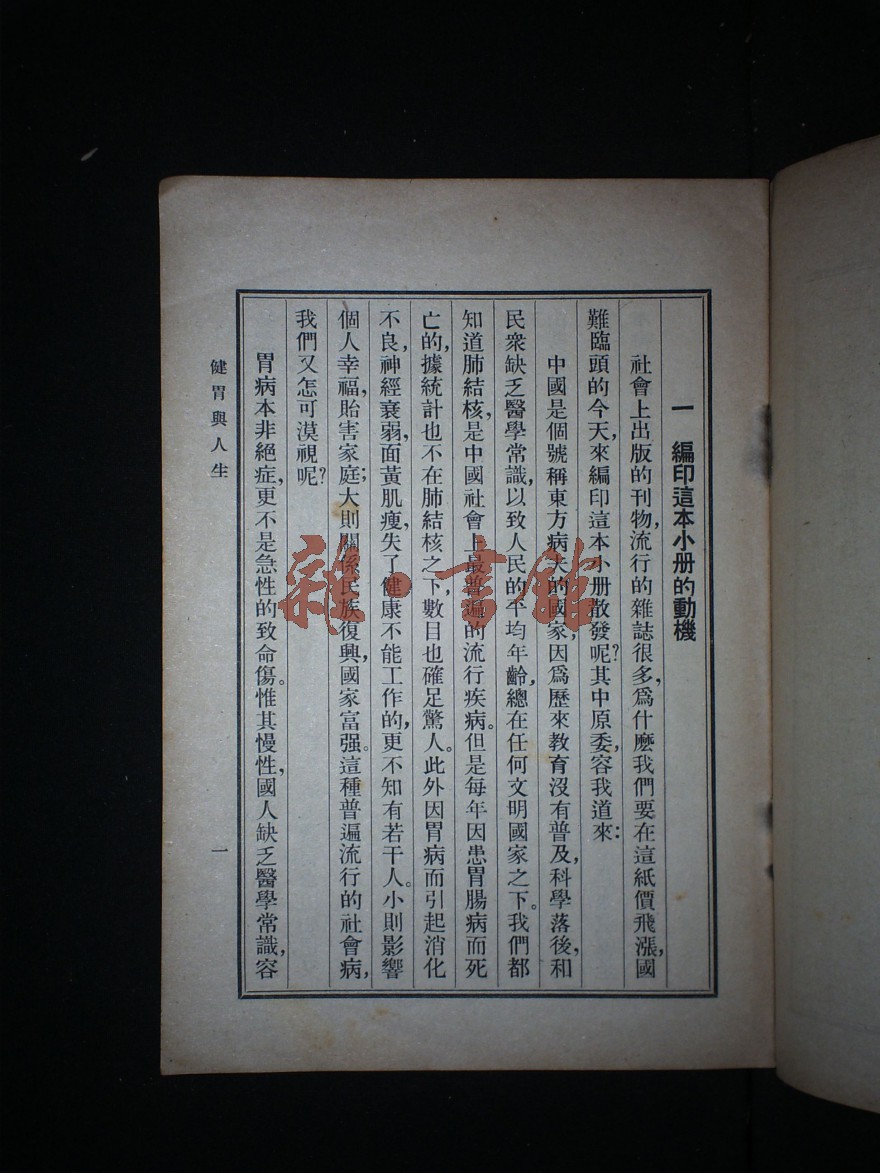 一 編印這本小册的動機
社會上出版的刊物，流行的雜誌很多，爲什麽我們要在這紙價飛漲，國
難臨頭的今天，來編印這本小册散發呢？其中原委，容我道來：
中國是個號稱東方病夫的國家，因爲歷來教育沒有普及，科學落後，和
民衆缺乏醫學常識，以致人民的平均年齡，總在任何文明國家之下。我們都
知道肺結核，是中國社會上最普遍的流行疾病。但是每年因患胃腸病而死
亡的，據統計也不在肺結核之下，數目也確足驚人。此外因胃病而引起消化
不良，神經衰弱，面黃肌瘦，失了健康不能工作的，更不知有若干人。小則影響
個人幸福，貽害家庭；大則關係民族復興，國家富强。這種普遍流行的社會病，
我們又怎可漠視呢？
胃病本非絕症，更不是急性的致命傷。惟其慢性，國人缺乏醫學常識，容
健胃與人生
一
雜·書館